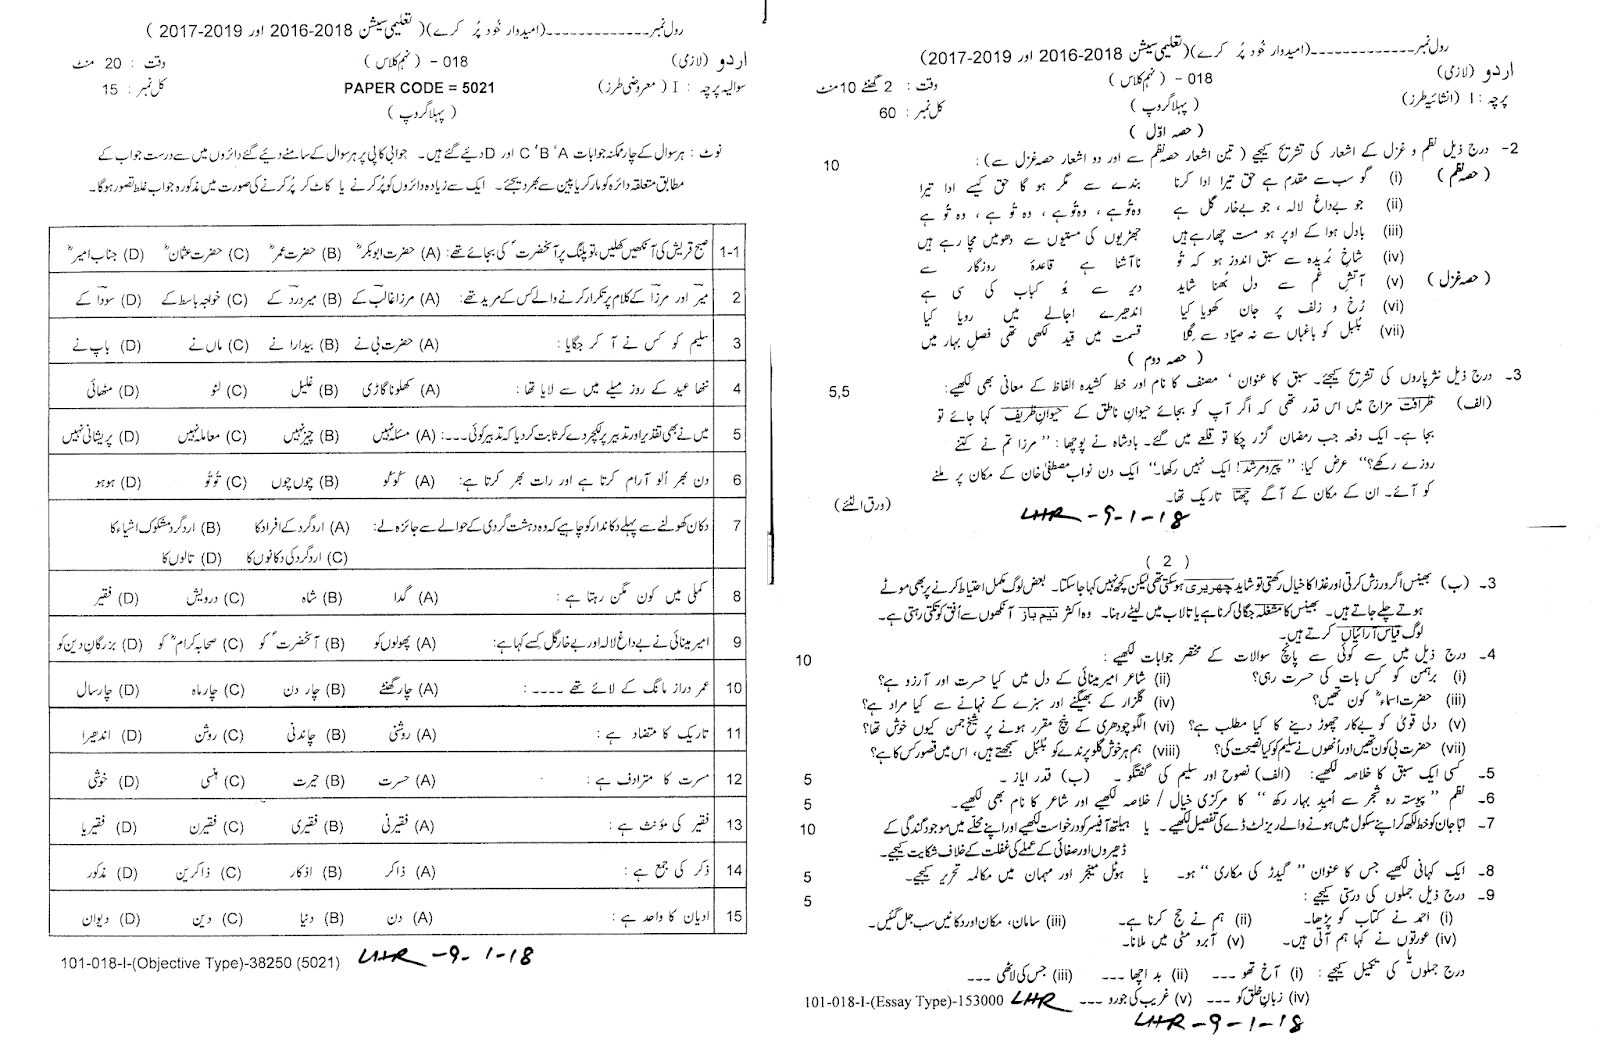 رول نمبر ------------- (امیدوار خود پُر کرے) ( تعلیمی سیشن 2018-2016 اور 2019-2017 )
اردو (لازمی) 018 - ( نہم کلاس ) وقت : 20 منٹ
سوالیہ پرچہ : I ( معروضی طرز) PAPER CODE = 5021 کل نمبر : 15
( پہلا گروپ )
نوٹ : ہر سوال کے چار ممکنہ جوابات A ‘B ‘C اور D دئیے گئے ہیں۔ جوابی کاپی پر ہر سوال کے سامنے دئیے گئے دائروں میں سے درست جواب کے
مطابق متعلقہ دائرہ کو مارکر یا پین سے بھر دیجئے۔ ایک سے زیادہ دائروں کو پُر کرنے یا کاٹ کر پُر کرنے کی صورت میں مذکورہ جواب غلط تصور ہوگا۔
1-1 صبح قریش کی آنکھیں کھلیں، تو پلنگ پر آنحضرت ؐ کی بجائے تھے: (A) حضرت ابوبکر ؓ (B) حضرت عمر ؓ (C) حضرت عثمان ؓ (D) جناب امیر ؓ
2 میر اور مرزا کے کلام پر تکرار کرنے والے کس کے مرید تھے: (A) مرزا غالب کے (B) میر درد کے (C) خواجہ باسط کے (D) سودا کے
3 سلیم کو کس نے آ کر جگایا : (A) حضرت بی نے (B) بیدارا نے (C) ماں نے (D) باپ نے
4 ننھا عید کے روز میلے میں سے لایا تھا : (A) کھلونا گاڑی (B) غلیل (C) لٹو (D) مٹھائی
5 میں نے بھی تقدیر اور تدبیر پر لیکچر دے کر ثابت کر دیا کہ تدبیر کوئی ۔۔۔۔: (A) مسئلہ نہیں (B) چیز نہیں (C) معاملہ نہیں (D) پریشانی نہیں
6 دن بھر اُلو آرام کرتا ہے اور رات بھر کرتا ہے: (A) گُوگُو (B) چوں چوں (C) تُو تُو (D) ہوہو
7 دکان کھولنے سے پہلے دکاندار کو چاہیے کہ وہ دہشت گردی کے حوالے سے جائزہ لے: (A) ارد گرد کے افراد کا (B) ارد گرد مشکوک اشیاء کا
(C) ارد گرد کی دکانوں کا (D) تالوں کا
8 کملی میں کون مگن رہتا ہے : (A) گدا (B) شاہ (C) درویش (D) فقیر
9 امیر مینائی نے بے داغ لالہ اور بے خار گل کسے کہا ہے: (A) پھولوں کو (B) آنحضرت ؐ کو (C) صحابہ کرام ؓ کو (D) بزرگان دین کو
10 عمر دراز مانگ کے لائے تھے ۔۔۔۔ : (A) چار گھنٹے (B) چار دن (C) چار ماہ (D) چار سال
11 تاریک کا متضاد ہے : (A) روشنی (B) چاندنی (C) روشن (D) اندھیرا
12 مسرت کا مترادف ہے : (A) حسرت (B) حیرت (C) ہنسی (D) خوشی
13 فقیر کی مؤنث ہے : (A) فقیرنی (B) فقیری (C) فقیرن (D) فقیریا
14 ذکر کی جمع ہے : (A) ذاکر (B) اذکار (C) ذاکرین (D) مذکور
15 ادیان کا واحد ہے : (A) دن (B) دنیا (C) دین (D) دیوان
101-018-I-(Objective Type)-38250 (5021) LHR -9-1-18
رول نمبر ------------- (امیدوار خود پُر کرے) (تعلیمی سیشن 2018-2016 اور 2019-2017)
اردو (لازمی) 018 - ( نہم کلاس ) وقت : 2 گھنٹے 10 منٹ
پرچہ : I (انشائیہ طرز) ( پہلا گروپ ) کل نمبر : 60
( حصہ اوّل )
2- درج ذیل نظم و غزل کے اشعار کی تشریح کیجیے ( تین اشعار حصہ نظم سے اور دو اشعار حصہ غزل سے ) : 10
( حصہ نظم ) (i) گو سب سے مقدم ہے حق تیرا ادا کرنا بندے سے مگر ہو گا حق کیسے ادا تیرا
(ii) جو بے داغ لالہ ، جو بے خار گل ہے وہ تُو ہے ، وہ تُو ہے ، وہ تُو ہے ، وہ تُو ہے
(iii) بادل ہوا کے اوپر ہو مست چھا رہے ہیں جھڑیوں کی مستیوں سے دھومیں مچا رہے ہیں
(iv) شاخِ بُریدہ سے سبق اندوز ہو کہ تُو ناآشنا ہے قاعدۂ روزگار سے
( حصہ غزل ) (v) آتشِ غم سے دل بُھنا شاید دیر سے بُو کباب کی سی ہے
(vi) رُخ و زلف پر جان کھویا کیا اندھیرے اجالے میں رویا کیا
(vii) بُلبل کو باغباں سے نہ صیّاد سے گِلا قسمت میں قید لکھی تھی فصلِ بہار میں
( حصہ دوم )
3- درج ذیل نثر پاروں کی تشریح کیجئے۔ سبق کا عنوان ‘ مصنف کا نام اور خط کشیدہ الفاظ کے معانی بھی لکھیے: 5,5
(الف) ظرافت مزاج میں اس قدر تھی کہ اگر آپ کو بجائے حیوانِ ناطق کے حیوانِ ظریف کہا جائے تو
بجا ہے۔ ایک دفعہ جب رمضان گزر چکا تو قلعے میں گئے۔ بادشاہ نے پوچھا : ’’ مرزا تم نے کتنے
روزے رکھے؟‘‘ عرض کیا: ’’ پیر و مرشد! ایک نہیں رکھا۔‘‘ ایک دن نواب مصطفیٰ خان کے مکان پر ملنے
کو آئے۔ ان کے مکان کے آگے چھتا تاریک تھا۔ (ورق الٹیے)
LHR -9-1-18
( 2 )
3- (ب) بھینس اگر ورزش کرتی اور غذا کا خیال رکھتی تو شاید چھریری ہو سکتی تھی لیکن کچھ نہیں کہا جا سکتا۔ بعض لوگ مکمل احتیاط کرنے پر بھی موٹے
ہوتے چلے جاتے ہیں۔ بھینس کا مشغلہ جگالی کرنا ہے یا تالاب میں لیٹے رہنا۔ وہ اکثر نیم باز آنکھوں سے اُفق کو تکتی رہتی ہے۔
لوگ قیاس آرائیاں کرتے ہیں۔
4- درج ذیل میں سے کوئی سے پانچ سوالات کے مختصر جوابات لکھیے : 10
(i) برہمن کو کس بات کی حسرت رہی؟ (ii) شاعر امیر مینائی کے دل میں کیا حسرت اور آرزو ہے؟
(iii) حضرت اسماء ؓ کون تھیں؟ (iv) گلزار کے بھیگنے اور سبزے کے نہانے سے کیا مراد ہے؟
(v) دلی قویٰ کو بے کار چھوڑ دینے کا کیا مطلب ہے؟ (vi) الگو چودھری کے پنچ مقرر ہونے پر شیخ جمن کیوں خوش تھا؟
(vii) حضرت بی کون تھیں اور اُنھوں نے سلیم کو کیا نصیحت کی؟ (viii) ہم ہر خوش گلو پرندے کو بُلبُل سمجھتے ہیں، اس میں قصور کس کا ہے؟
5- کسی ایک سبق کا خلاصہ لکھیے: (الف) نصوح اور سلیم کی گفتگو ۔ (ب) قدر ایاز ۔ 5
6- نظم ’’ پیوستہ رہ شجر سے اُمید بہار رکھ ‘‘ کا مرکزی خیال / خلاصہ لکھیے اور شاعر کا نام بھی لکھیے۔ 5
7- ابّا جان کو خط لکھ کر اپنے سکول میں ہونے والے ریزلٹ ڈے کی تفصیل لکھیے۔ یا ہیلتھ آفیسر کو درخواست لکھیے اور اپنے محلّے میں موجود گندگی کے 10
ڈھیروں اور صفائی کے عملے کی غفلت کے خلاف شکایت کیجیے۔
8- ایک کہانی لکھیے جس کا عنوان ’’ گیدڑ کی مکاری ‘‘ ہو۔ یا ہوٹل مینیجر اور مہمان میں مکالمہ تحریر کیجیے۔ 5
9- درج ذیل جملوں کی درستی کیجیے : 5
(i) احمد نے کتاب کو پڑھا۔ (ii) ہم نے حج کرنا ہے۔ (iii) سامان، مکان اور دکانیں سب جل گئیں۔
(iv) عورتوں نے کہا ہم آتی ہیں۔ (v) آبرو مٹی میں ملانا۔
یا
درج جملوں کی تکمیل کیجیے : (i) آخ تھو ۔۔۔ (ii) بد اچھا ۔۔۔ (iii) جس کی لاٹھی ۔۔۔
(iv) زبان خلق کو ۔۔۔ (v) غریب کی جورو ۔۔۔ 101-018-I-(Essay Type)-153000 LHR
LHR -9-1-18